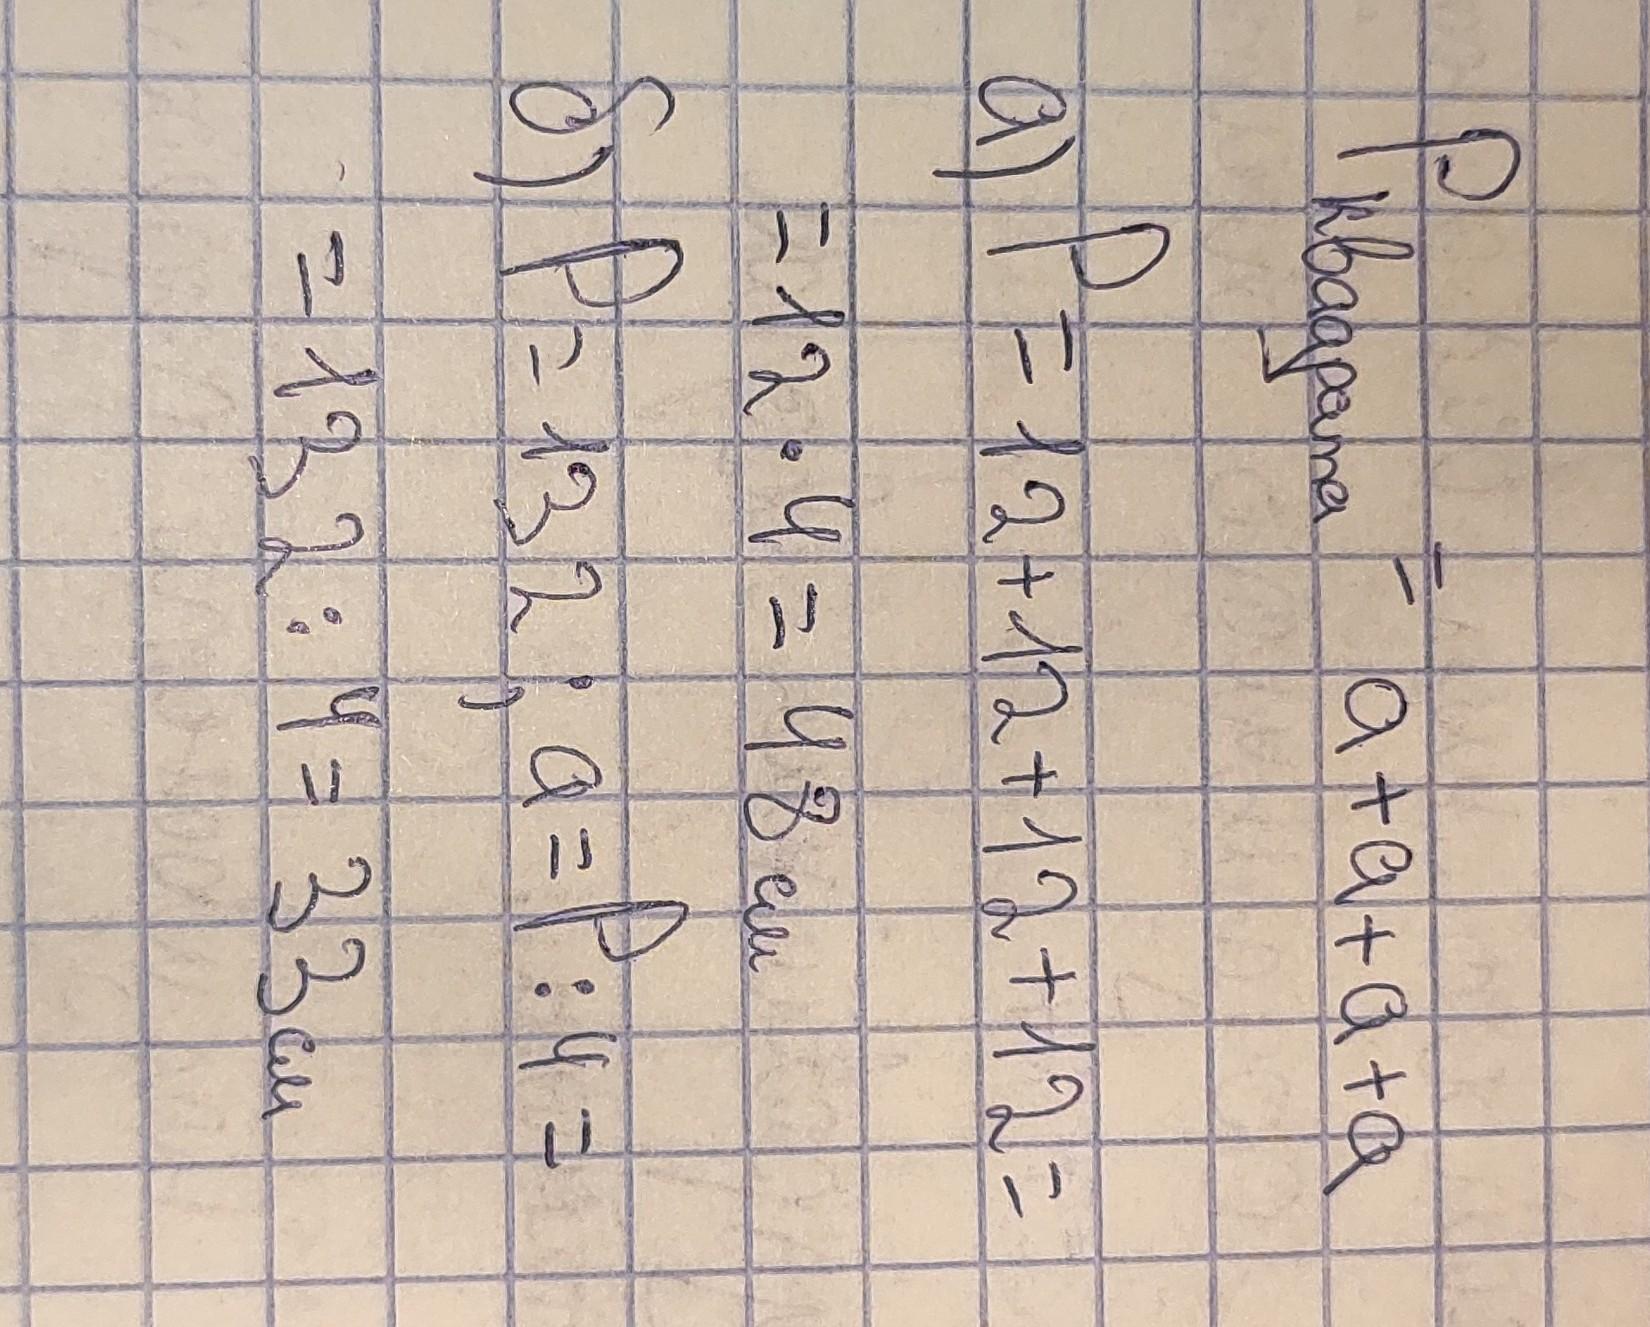 P квадрата = a+a+a+a
а) P = 12+12+12+12=
=12·4=48см
б) P=132; a=P:4=
=132:4=33см